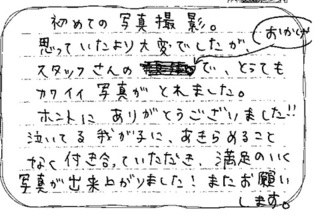 初めての写真撮影。
思っていたより大変でしたが、
スタッフさんのおかげで、とっても
カワイイ写真がとれました。
ホントにありがとうございました!!
泣いてる我が子に、あきらめること
なく付き合っていただき、満足のいく
写真が出来上がりました!またお願い
します。